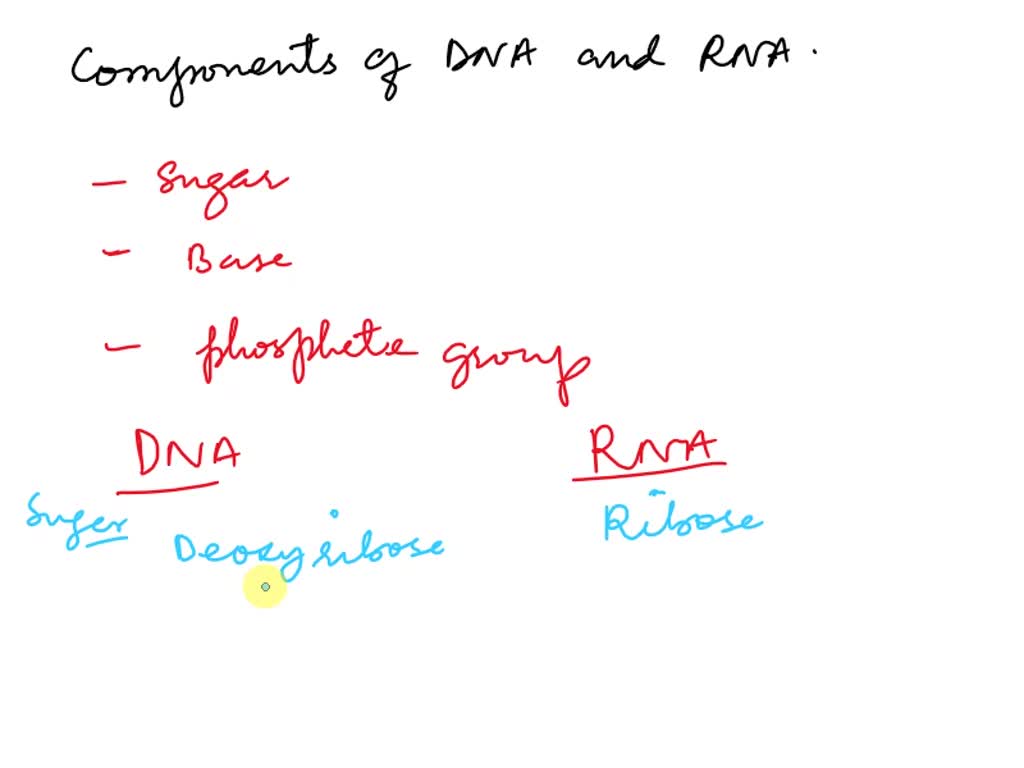 Components of DNA and RNA.
- Sugar
- Base
- phosphete group
DNA RNA
Suger Deoxyribose Ribose